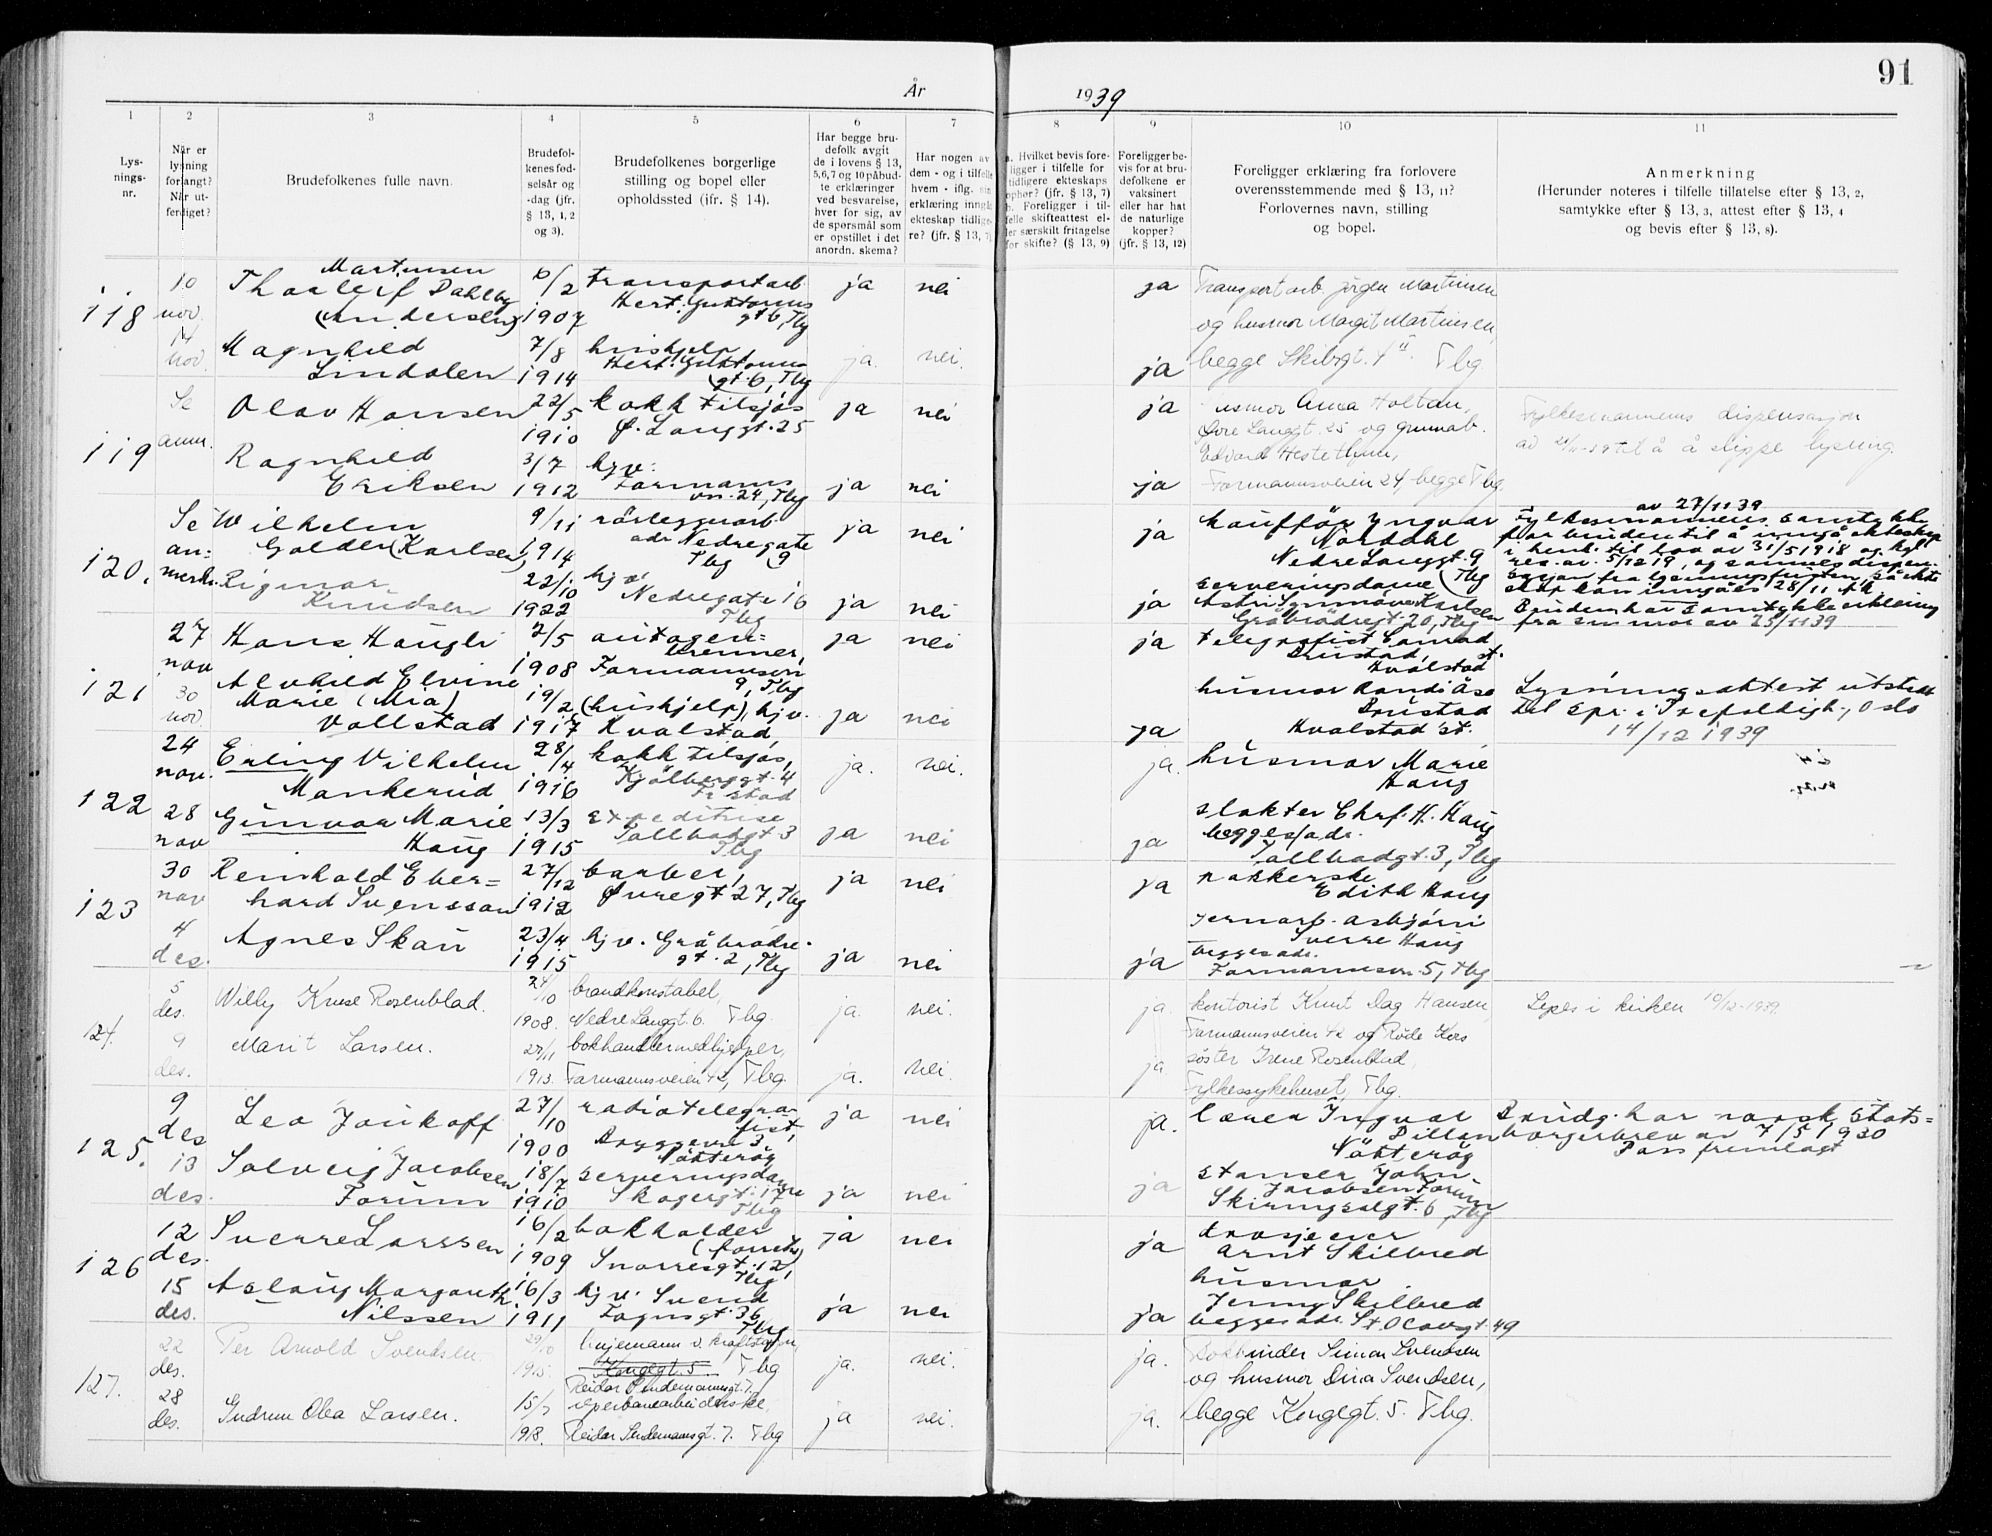 91
År 1939
1 2 3 4 5 6 7 8 9 10 11
Lys-
nings-
nr.
Når er
lysning
forlangt?
Når ut-
ferdiget?
Brudefolkenes fulle navn.
Brudefol-
kenes fød-
selsår og
-dag (jfr.
§ 13, 1, 2
og 3).
Brudefolkenes borgerlige
stilling og bopel eller
opholdssted (jfr. § 14).
Har begge bru-
defolk avgit
de i lovens § 13,
5,6,7 og 10 påbud-
te erklæringer
ved besvarelse,
hver for sig, av
de spørsmål som
er opstillet i det
anordn. skema?
Har nogen av
dem - og i tilfelle
hvem - iflg. sin
erklæring inngå
ekteskap tidlige-
re? (jfr. § 13, 7)
a. Hvilket bevis fore-
ligger i tilfelle for
tidligere ekteskaps
ophør? (jfr. § 13, 7)
b. Foreligger i til-
felle skifteattest el-
ler særskilt fritagelse
for skifte? (§ 13, 9)
Foreligger be-
vis for at bru-
defolkene er
vaksinert
eller har hat
de naturlige
kopper?
(jfr. § 13, 12)
Foreligger erklæring fra forlovere
overensstemmende med § 13, 11?
Forlovernes navn, stilling
og bopel.
Anmerkning
(Herunder noteres i tilfelle tillatelse efter § 13, 2,
samtykke efter § 13, 3, attest efter § 13, 4
og bevis efter § 13, 8).
118
10
nov.
14
nov.
Martinsen
Thorleif Dahlby
(Andersen)
/2
1907
transportarb.
Hert. Guttorms
gt 6, Tbg
ja nei ja
Transportarb. Jörgen Martinsen
og husmor Margit Martinsen,
Magnhild
Lindalen
7/8
1914
hushjelp,
Hert. Guttorms
gt. 6, Tbg
ja. nei. ja
begge Skibsgt. 4 II. Tbg
119
Se
anm.
Olav Hansen
22/5
1910
kokk tilsjös
Ø. Langgt. 25
ja nei ja
Husmor Anna Holtan,
Øvre Langgt. 25 og
Edvard
Fylkesmannens dispensasjon
av 21/11-39 til å slippe lysning.
Ragnhild
Eriksen
3/7
1912
hjv:
Farmanns
vn. 24, Tbg
ja nei ja
Farmannsveien 24, begge Tbg.
120.
Se
an=
merkn.
Wilhelm
Golden (Karlsen)
9/11
1914
rörleggerarb.
adr Nedregate
9 Tbg
ja nei ja
Sjauffør Yngvar
Norddahl
Nedre Langgt. 9
Tbg
av 27/11 39
Fylkesmannens samtykke
for bruden til å inngå ekteskap
i henh. til lov av 31/5 1918 og kgl.
res. av 5/12 19, og samme dispen-
sasjon fra lysningsfristen, så ekte
skap kan inngåes 28/11 d.å.
Rigmor
Knudsen
22/10
1922
hjv.
Nedregate 16
Tbg
ja nei ja
serveringsdame
Astri Synnöve Karlsen
Gråbrödregt. 20, Tbg
Bruden har samtykkeerklæring
fra sin mor av 25/11 39
121
27
nov
30
nov
Hans Haugli
2/5
1908
autogen=
brenner,
Farmannsvn
9, Tbg
ja nei ja
telegrafist Conrad
Brustad,
Hvalstad st.
Alvhild Elvine
Marie (Mia)
Vollstad
19/2
1917
(hushjelp), hjv.
Hvalstad
ja nei ja
husmor Randi Åse
Brustad
Hvalstad st.
Lysningsattest utstedt
til spr. i Trefoldigh., Oslo
14/12 1939
122
24
nov.
28
nov
Erling Vilhelm
Mankerud
28/4
1916
kokk tilsjös,
Kjölberggt. 4
Fr stad
ja. nei. ja.
husmor Marie
Haug
Gunvor Marie
Haug
13/3
1915
expeditrise
Tollbodgt 3
Tbg
ja nei ja
slakter Chrf. H. Haug
begges adr.
Tollbodgt. 3, Tbg
123
30
nov
4
des.
Reinhold Eber=
hard Svensson
27/12
1912
barber,
Øvregt 27, Tbg
ja nei ja
pakkerske
Edith Haug
Agnes Skau
23/4
1915
hjv. Gråbrödre-
gt. 2, Tbg
ja nei ja
jernarb. Asbjörn
Sverre Haug
begges adr.
Farmannsvn. 5, Tbg
124.
5
des.
9
des.
Willy Kruse Rosenblad.
24/10
1908.
brandkonstabel,
Nedre Langgt. 6. Tbg.
ja. nei. ja.
kontorist Knut Dag Hansen,
Farmannsveien 42 og Røde Kors
Leses i kirken 10/12-1939.
Marit Larsen.
27/11
1913.
bokhandlermedhjelper,
Farmannsveien 42, Tbg.
ja. nei. ja
søster Irene Rosenblad,
Fylkessykehuset, Tbg.
125.
9
des
13
des.
Leo Joukoff
27/10
1900
radiotelegra-
fist,
Bryggevn 3,
Nötteröy
ja nei ja.
lærer Ingvar
Dillan
Nötteröy
Brudg. har norsk stats=
borgerbrev av 7/5 1930
Pass fremlagt
Solveig Jacobsen
Forum
18/7
1910
serveringsdame
Skogergt. 17
Tbg
ja nei ja
stanser John
Jacobsen Forum
Skiringsalgt. 6, Tbg
126
12
des.
15
des.
Sverre Larssen
16/2
1909
bokholder
(forretn)
Snorresgt. 12,
Tbg
ja nei ja
drosjeeier
Arnt Skilbred
Aslaug Margareth
Nilssen
16/3
1911
hjv. Svend
Foynsgt. 36
Tbg
ja nei ja
husmor
Jenny Skilbred
begges adr. St. Olavsgt. 49
127.
22
des.
28
des.
Per Arnold Svendsen.
29/10
1915.
linjemann v. kraftstasjon,
Kongegt. 5 Tbg
Reidar Sendemannsgt. 7.
ja. nei. ja.
Bokbinder Simon Svendsen
og husmor Dina Svendsen,
Gudrun Olea Larsen.
15/7
1918.
reperbanearbeiderske,
Reidar Sendemannsgt. 7. Tbg
ja nei. ja.
begge Kongegt. 5. Tbg.